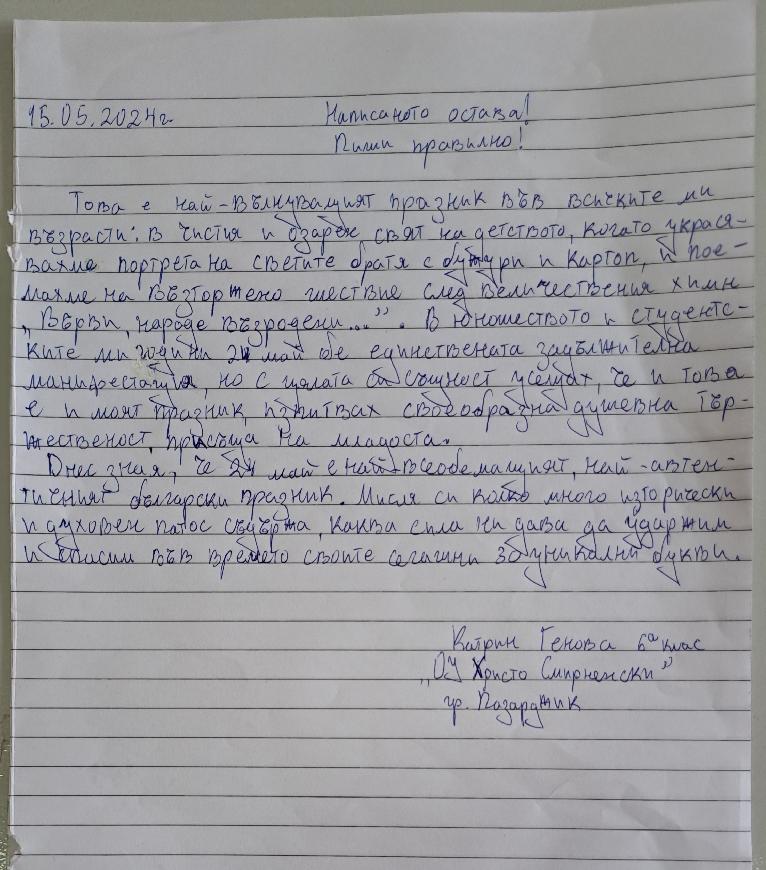 15.05.2024г. Написаното остава!
Пиши правилно!
Това е най-вълнуващият празник във всичките ми
възрасти: в чистия и озарен свят на детството, когато украся-
вахме портрета на светите братя с бутури и картоп, и пое-
махме на възторжено шествие след величествения химн
„Върви, народе възродени...”. В юношеството и студентс-
ките ми години 24 май бе единствената задължителна
манифестация, но с цялата си същност усещах, че и това
е и моят празник, изпитвах своеобразна душевна тър-
жественост, присъща на младоста.
Днес зная, че 24 май е най-всеобемащият, най-автен-
тичният български празник. Мисля си колко много изторически
и духовен патос съдържа, каква сила ни дава да удържим
и впишем във времето своите сегашни 30 уникални букви.
Катрин Генова 6а клас
„ОУ Христо Смирненски”
гр. Пазарджик